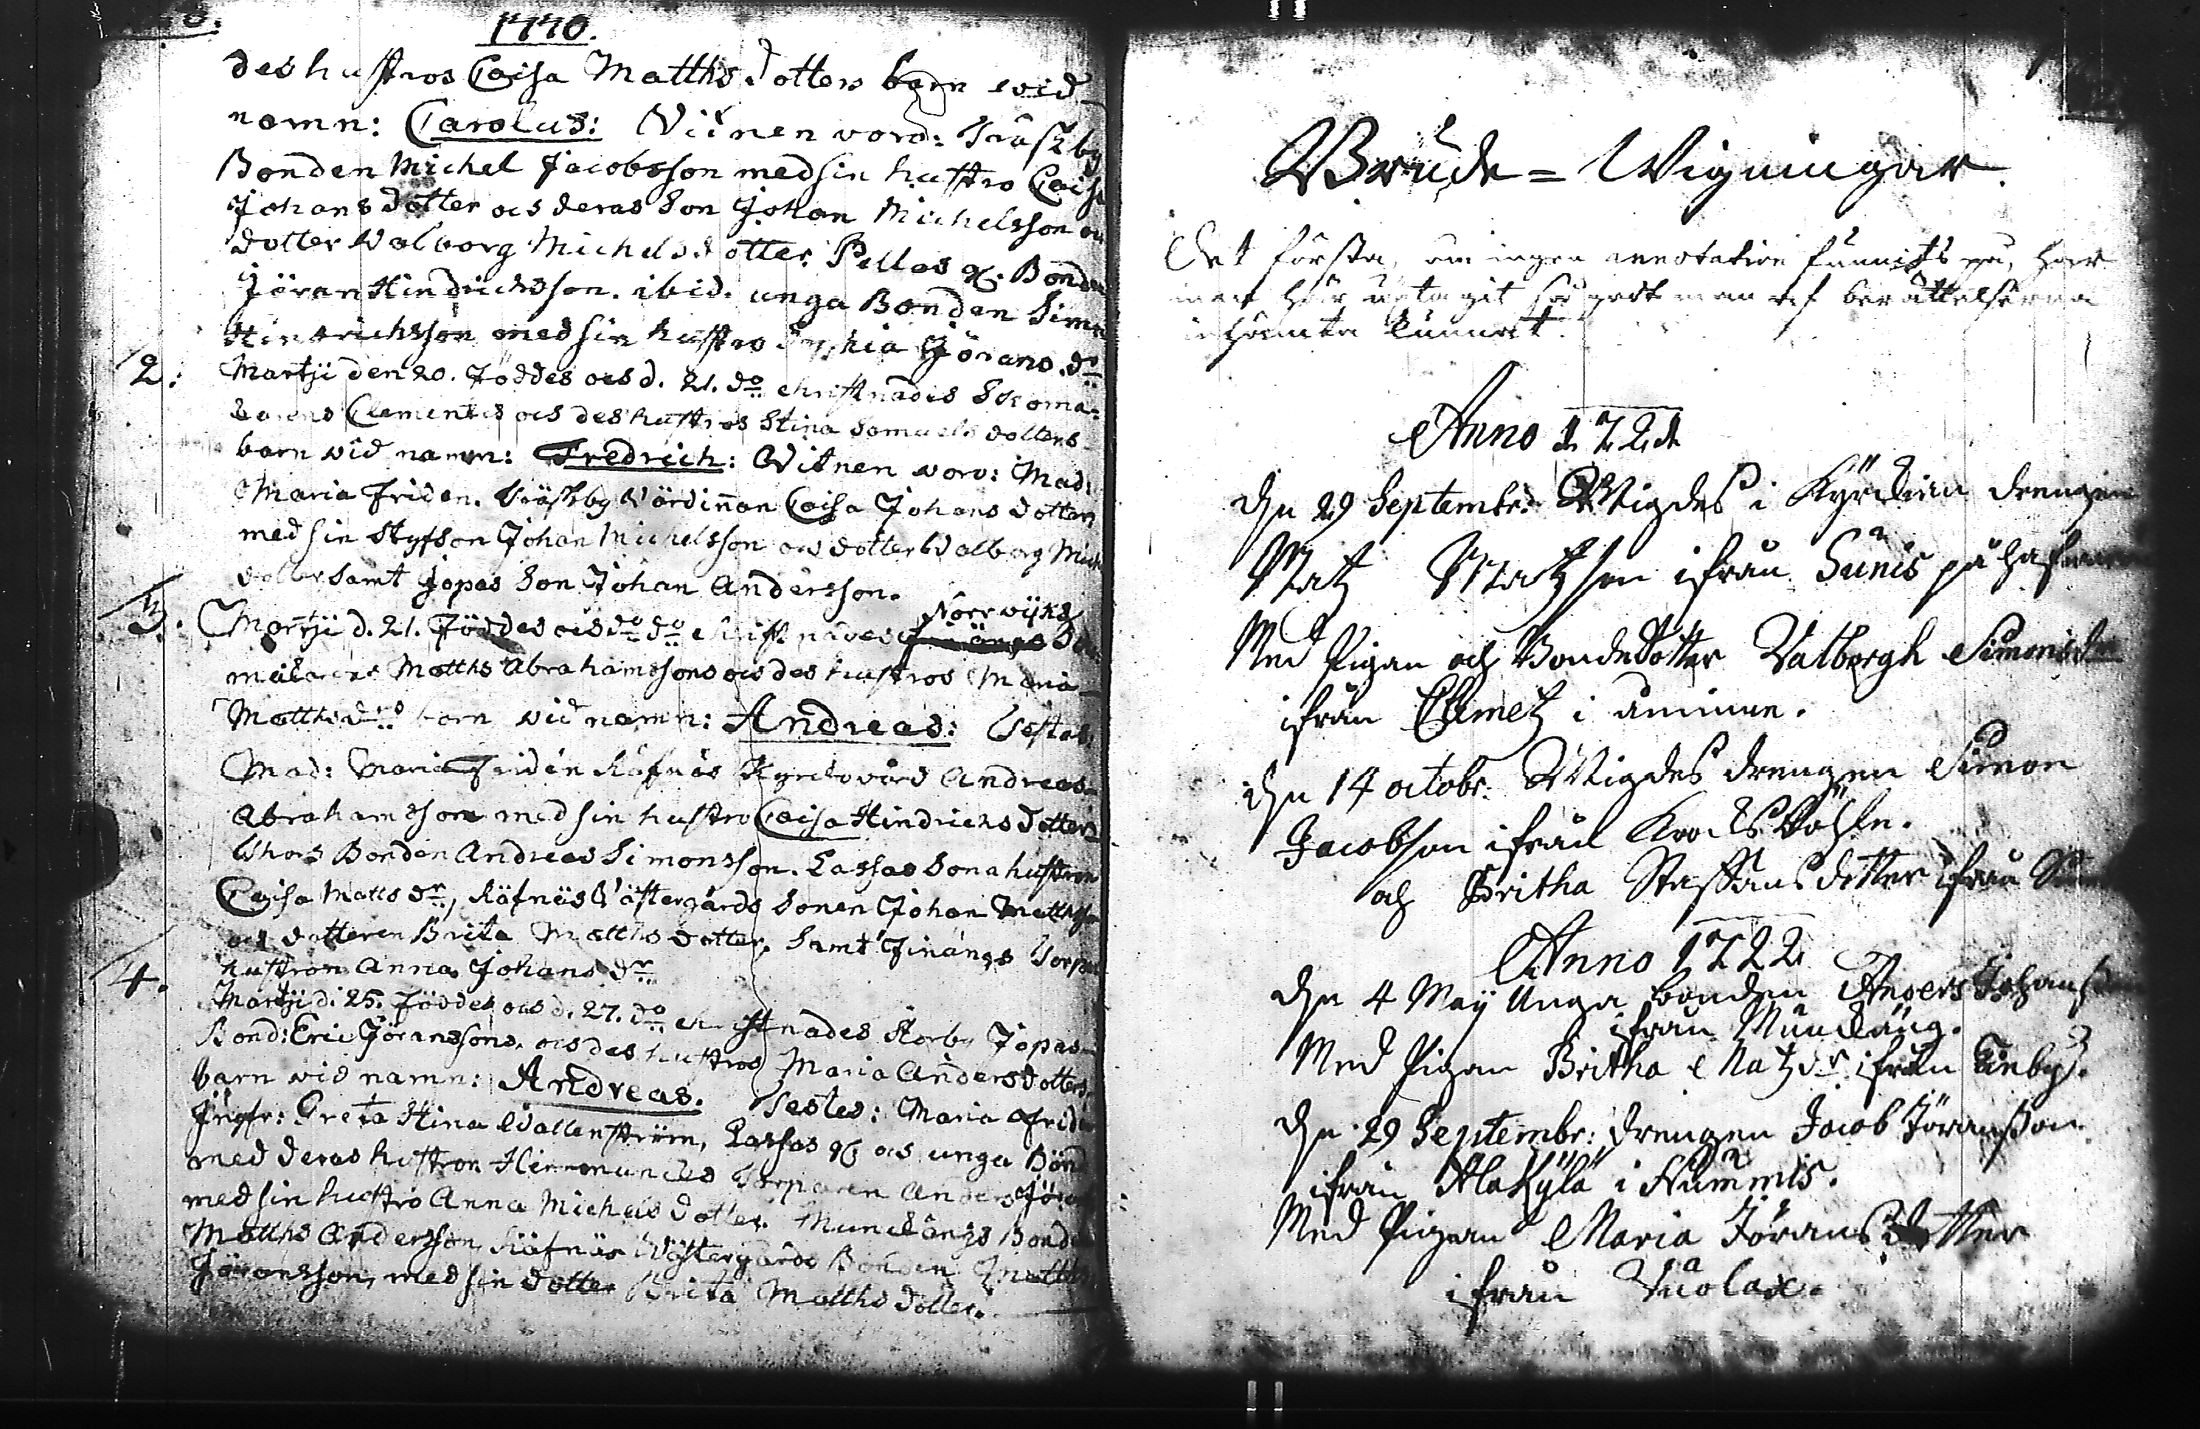 1770.
des hustros Caisa Matths dotters barn wid
namn: Carolus: Vitnen voro: Träskby
Bonden Michel Jacobsson med sin hustro Caisa
Johans dotter ocs deras Son Johan Michelsson ocs
dotter Valborg Michels dotter. Pellas gl. Bonden
Jöran Hindrichsson. ibid. unga Bonden Simon
Hindrichsson med sin hustro Sophia Jörans dr
2. Martji den 20. föddes ocs d. 21. do christnades
Clementis ocs des hustros Stina Samuels dotters
barn wid namn: Fredrich: Vitnen voro: Mad:
Maria Friden. Träskby Värdinnan Caisa Johans dotter
med sin Styfson Johan Michelsson ocs dotter Valborg Mich
dotter samt Jopas Son Johan Andersson.
Norrwijks
3. Martji d. 21. föddes ocs do do christnades
Matths Abrahamssons ocs des hustros Maria
Matths dr barn wid namn: Andreas: Testes:
Mad: Maria Fridén Räfnäs Kyrckovärd Andreas
Abrahamsson med sin hustro Caisa Hindrichs dotter
Bonden Andreas Simonsson. Lassas Sona hustron
Caisa Matts dr, Räfnäs Västergårds Sonen Johan Mattsson
ocs dotteren Brita Matths dotter, Samt Finängs Torpare
hustron Anna Johans dr
4. Martji d. 25. föddes ocs d. 27. do christnades Storby Jopas
Bond: Eric Jöranssons. ocs des hustros Maria Anders dotters
barn wid namn: Andreas. Testes: Maria Fridén
Jungfr: Greta Stina Wallenström, Lassas gl ocs unga Bönd
med deras hustron Torparen Anders Jöran
med sin hustro Anna Michels dotter. Muncängs Bonden
Matths Andersson, Räfnäs Wästergårds Bonden Matths
Jöransson, med sin dotter Brita Matths dotter.
Brude = Wigningar.
Det första, om ingen annotation funnits, har
man här intagit så godt man af berättelserna
inhämta kunnat.
Anno 1721
den 29 Septembr: Wigdes i Kyrckan drengen
Matz Matzson ifrån Sunis på
Med Pigan och Bondedotter Valborgh Simonsdr
ifrån Clemetz i åminne.
den 14 octobr: Wigdes drengen Simon
Jacobson ifrån
och Britha Staffans dotter ifrån
Anno 1722
den 4 Maÿ Unga bonden Anders Johanson
ifrån Muncäng.
Med Pigan Britha Matzdr ifrån Finby.
den 29 Septembr: drengen Jacob Jöransson
ifrån Alakylä i Nummis.
Med Pigan Maria Jörans dotter
ifrån Vuolax.